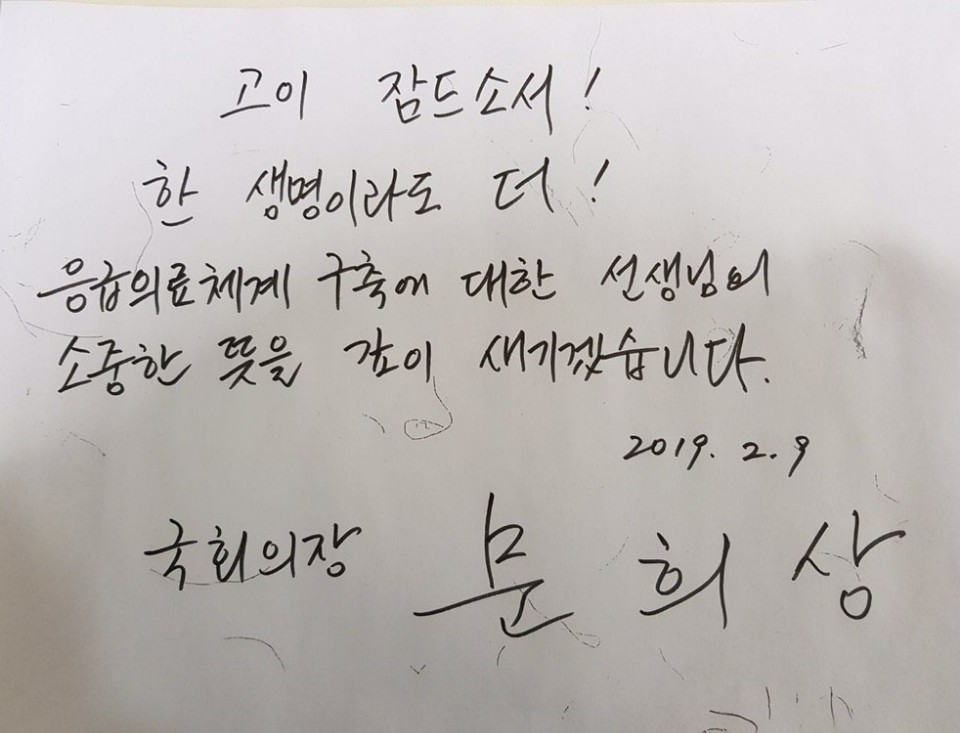 고이 잠드소서!
한 생명이라도 더!
응급의료체계 구축에 대한 선생님의
소중한 뜻을 깊이 새기겠습니다.
2019. 2. 9
국회의장 문희상